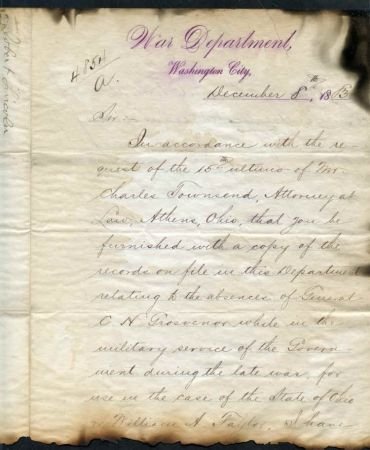 War Department,
Washington City,
4854
A.
December 8th, 18
Sir:—
In accordance with the re-
quest of the 15th ultimo of Mr
Charles Townsend, Attorney at
Law, Athens, Ohio, that you be
furnished with a copy of the
records on file in this Department
relating to the absences of General
C H Grosvenor while in the
military service of the Govern-
ment during the late war, for
use in the case of the State of Ohio
vs William A Taylor, I have
Robert Lincoln